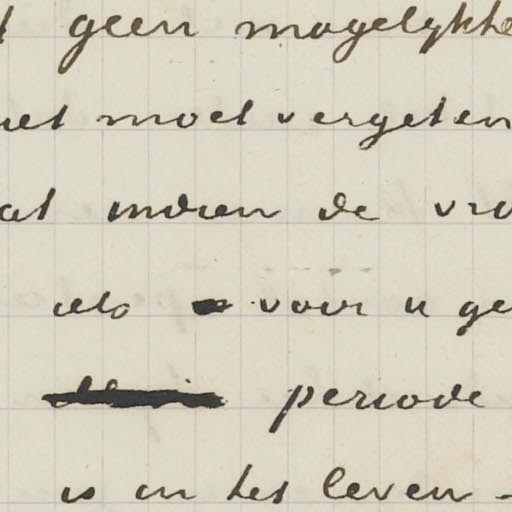 geen mogelykhe
iet moet vergeten
at indien de vro
als voor u ge
periode
is in het leven -